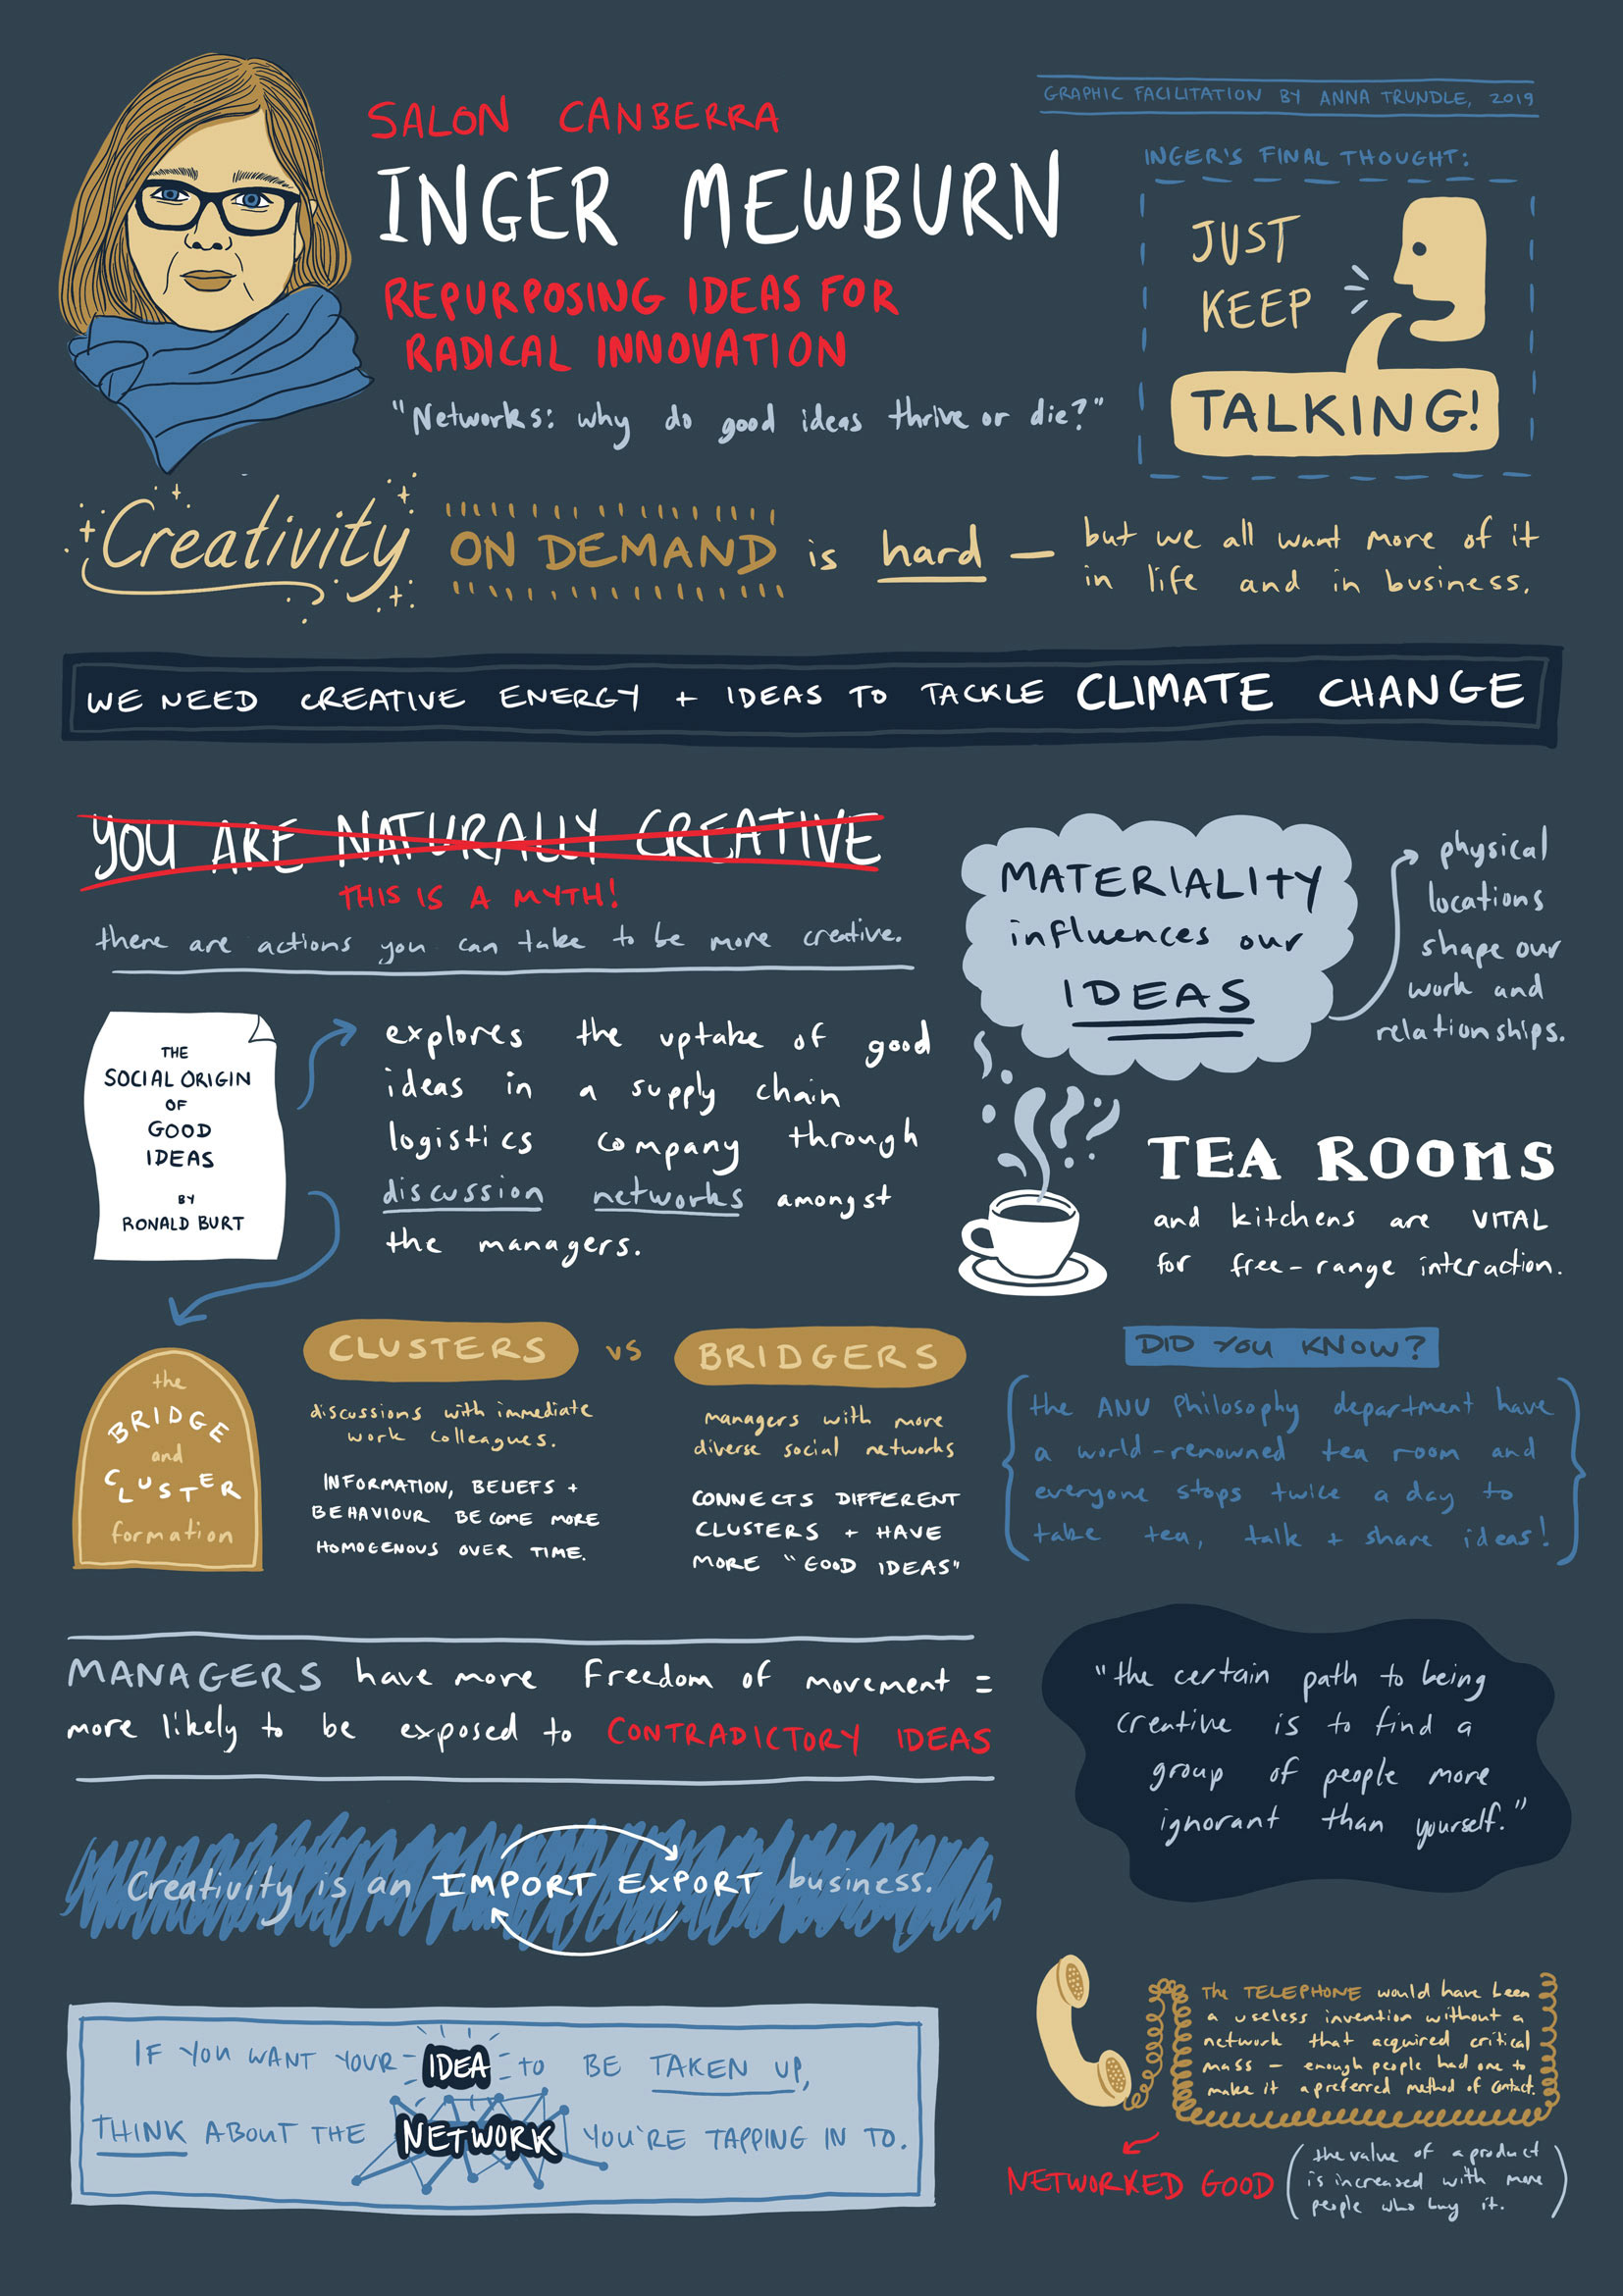 GRAPHIC FACILITATION BY ANNA TRUNDLE, 2019
SALON CANBERRA
INGER MEWBURN
REPURPOSING IDEAS FOR
RADICAL INNOVATION
"Networks: why do good ideas thrive or die?"
INGER'S FINAL THOUGHT:
JUST
KEEP
TALKING!
Creativity ON DEMAND is hard —
but we all want more of it
in life and in business.
WE NEED CREATIVE ENERGY + IDEAS TO TACKLE CLIMATE CHANGE
YOU ARE NATURALLY CREATIVE
THIS IS A MYTH!
there are actions you can take to be more creative.
THE
SOCIAL ORIGIN
OF
GOOD
IDEAS
BY
RONALD BURT
explores the uptake of good
ideas in a supply chain
logistics company through
discussion networks amongst
the managers.
MATERIALITY
influences our
IDEAS
physical
locations
shape our
work and
relationships.
TEA ROOMS
and kitchens are VITAL
for free-range interaction.
the
BRIDGE
and
CLUSTER
formation
CLUSTERS vs BRIDGERS
discussions with immediate
work colleagues.
INFORMATION, BELIEFS +
BEHAVIOUR BECOME MORE
HOMOGENOUS OVER TIME.
managers with more
diverse social networks
CONNECTS DIFFERENT
CLUSTERS + HAVE
MORE "GOOD IDEAS"
DID YOU KNOW?
the ANU Philosophy department have
a world-renowned tea room and
everyone stops twice a day to
take tea, talk + share ideas!
MANAGERS have more freedom of movement =
more likely to be exposed to CONTRADICTORY IDEAS
"the certain path to being
creative is to find a
group of people more
ignorant than yourself."
Creativity is an IMPORT EXPORT business.
IF YOU WANT YOUR IDEA TO BE TAKEN UP,
THINK ABOUT THE NETWORK YOU'RE TAPPING IN TO.
The TELEPHONE would have been
a useless invention without a
network that acquired critical
mass – enough people had one to
make it a preferred method of contact.
NETWORKED GOOD
(the value of a product
is increased with more
people who buy it.)